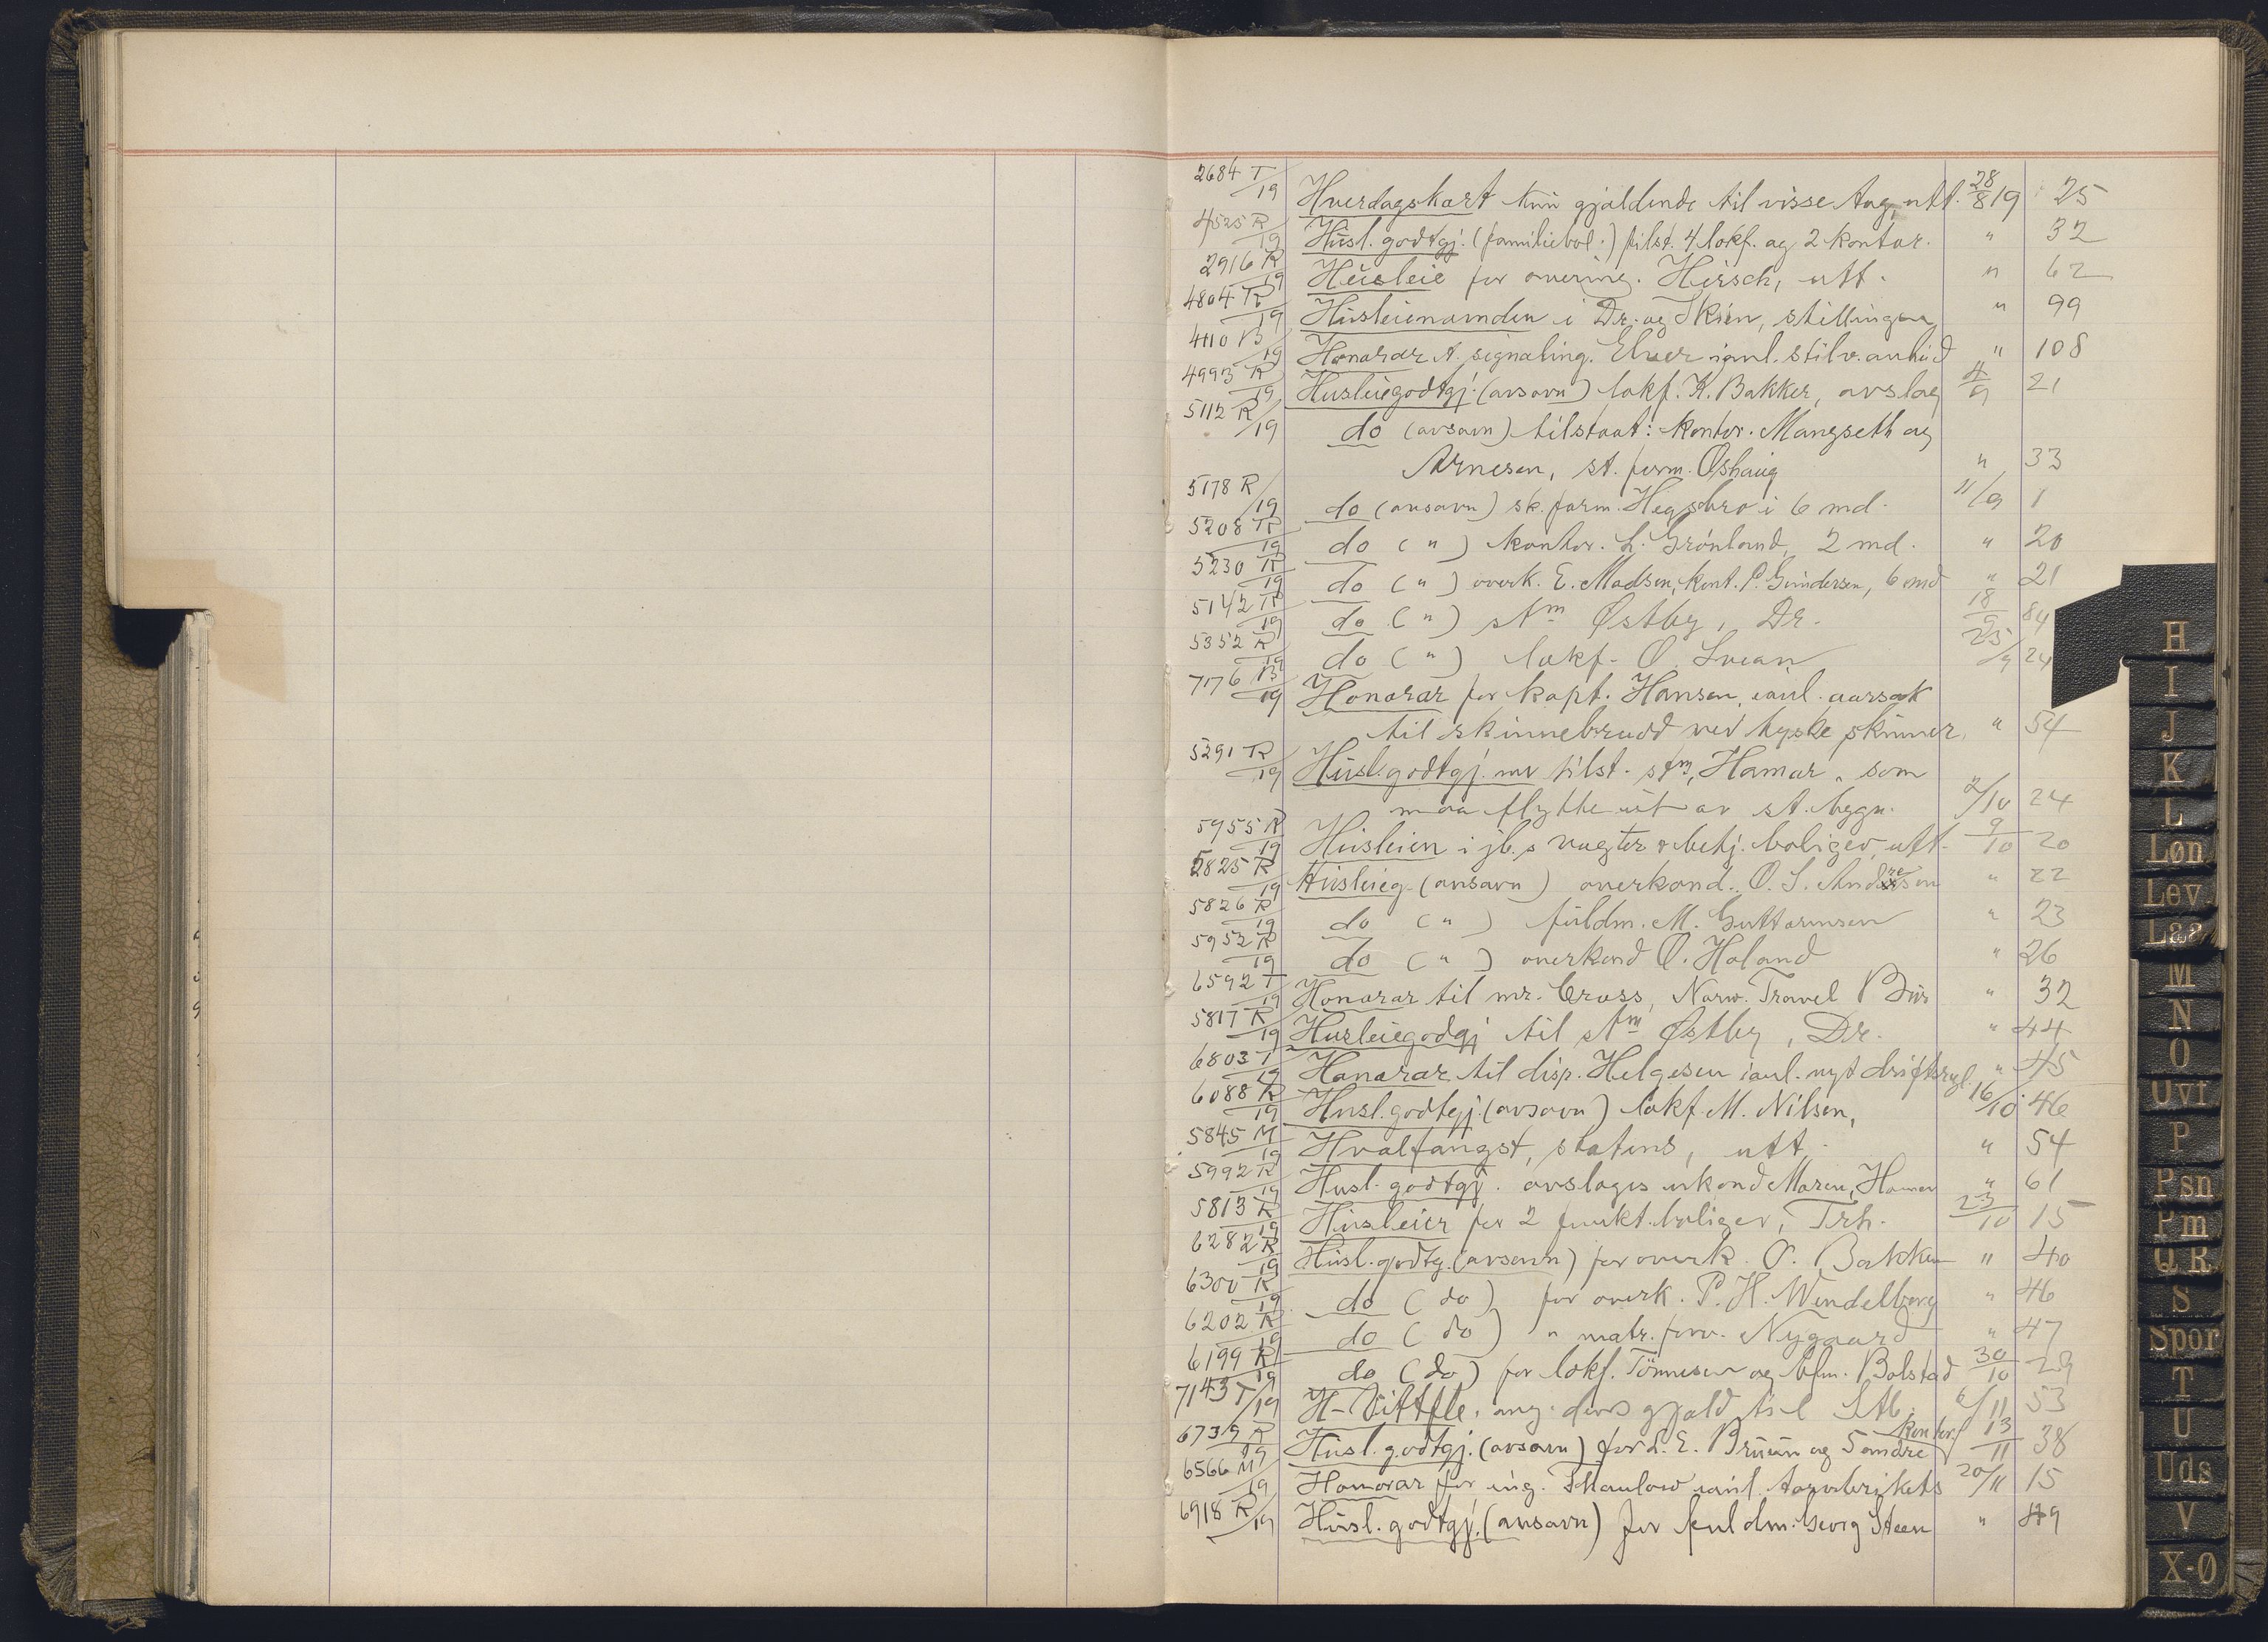 2684 T/19 Hverdagskart kun gjældende til visse tog, utt. 28/8 19 25
4525 R/19 Husl. godtgj. (familiebol.) tilst. 4 lokf. og 2 kontor. " 32
2916 R/19 Husleie for overing. Hirsch, utt. " 62
4804 R/19 Husleienævnden i Dr. og Skien, stillingen " 99
4110 B/19 Honorar t. signaling. Elver i anl. stilv. anbud " 108
4993 R/19 Husleiegodtgj. (avsavn) lokf. K. Bakker, avslag 4/9 21
5112 R/19 do (avsavn) tilstaat: kontor. Mangseth og
Arnesen, st. form. Øshaug " 33
5178 R/19 do (avsavn) sk. form. Hegsbro i 6 md. 11/9 1
5208 R/19 do ( " ) kontor. L. Grönland, 2 md. " 20
5230 R/19 do ( " ) overk. E. Madsen, kont. P. Gundersen, 6 md " 21
5142 R/19 do ( " ) stm Østby, Dr. 18/9 84
5352 R/19 do ( " ) lokf. O. Svean 25/9 24
7176 B/19 Honorar for kapt. Hansen, i anl. aarsak
til skinnebrudd ved tyske skinner, " 54
5291 R/19 Husl. godtgj. tilst. stm, Hamar, som
maa flytte ut av st. bygn. 2/10 24
5955 R/19 Husleien i jb.s vogter & betj. boliger, utt. 9/10 20
5825 R/19 Husleieg. (avsavn) overkond. O. S. Andresen " 22
5826 R/19 do ( " ) fuldm. M. Guttormsen " 23
5952 R/19 do ( " ) overkond O. Holand " 26
6592 T/19 Honorar til mr. Cross, Norw. Travel Bur " 32
5817 R/19 Husleiegodgj til stm Østby, Dr. " 44
6803 T/19 Honorar til disp. Helgesen i anl. nyt driftsregl. " 45
6088 R/19 Husl. godtgj. (avsavn) lokf. M. Nilsen, 16/10 46
5845 M/19 Hvalfangst, statens, utt. " 54
5992 R/19 Husl. godtgj. avslages Moren, Hamar " 61
5813 R/19 Husleier for 2 funkt. boliger, Trh. 23/10 15
6282 R/19 Husl. godtg. (avsavn) for overk. O. Bakken " 40
6300 R/19 do ( do ) for overk. P. H. Wendelborg " 46
6202 R/19 do ( do ) " matr. forv. Nygaard " 47
6199 R/19 do ( do ) for lokf. Tönnesen og bfm. Bolstad 30/10 29
7143 T/19 H-Vittfle. ang. dens gjæld til Stb. 6/11 53
6739 R/19 Husl. godtgj. (avsavn) for L. E. Bruun og 5 andre kontor. 13/11 38
6566 M/19 Honorar for ing. Thaulow i anl. torvbrikets 20/11 15
6918 R/19 Husl. godtgj. (avsavn) for fuldm. Georg Steen " 49
H
I
J
K
L
Løn
Lev.
Laa
M
N
O
Uvf
P
Psn
Pm
Q R
S
Spor
T
U
Uds
V
X-Ø